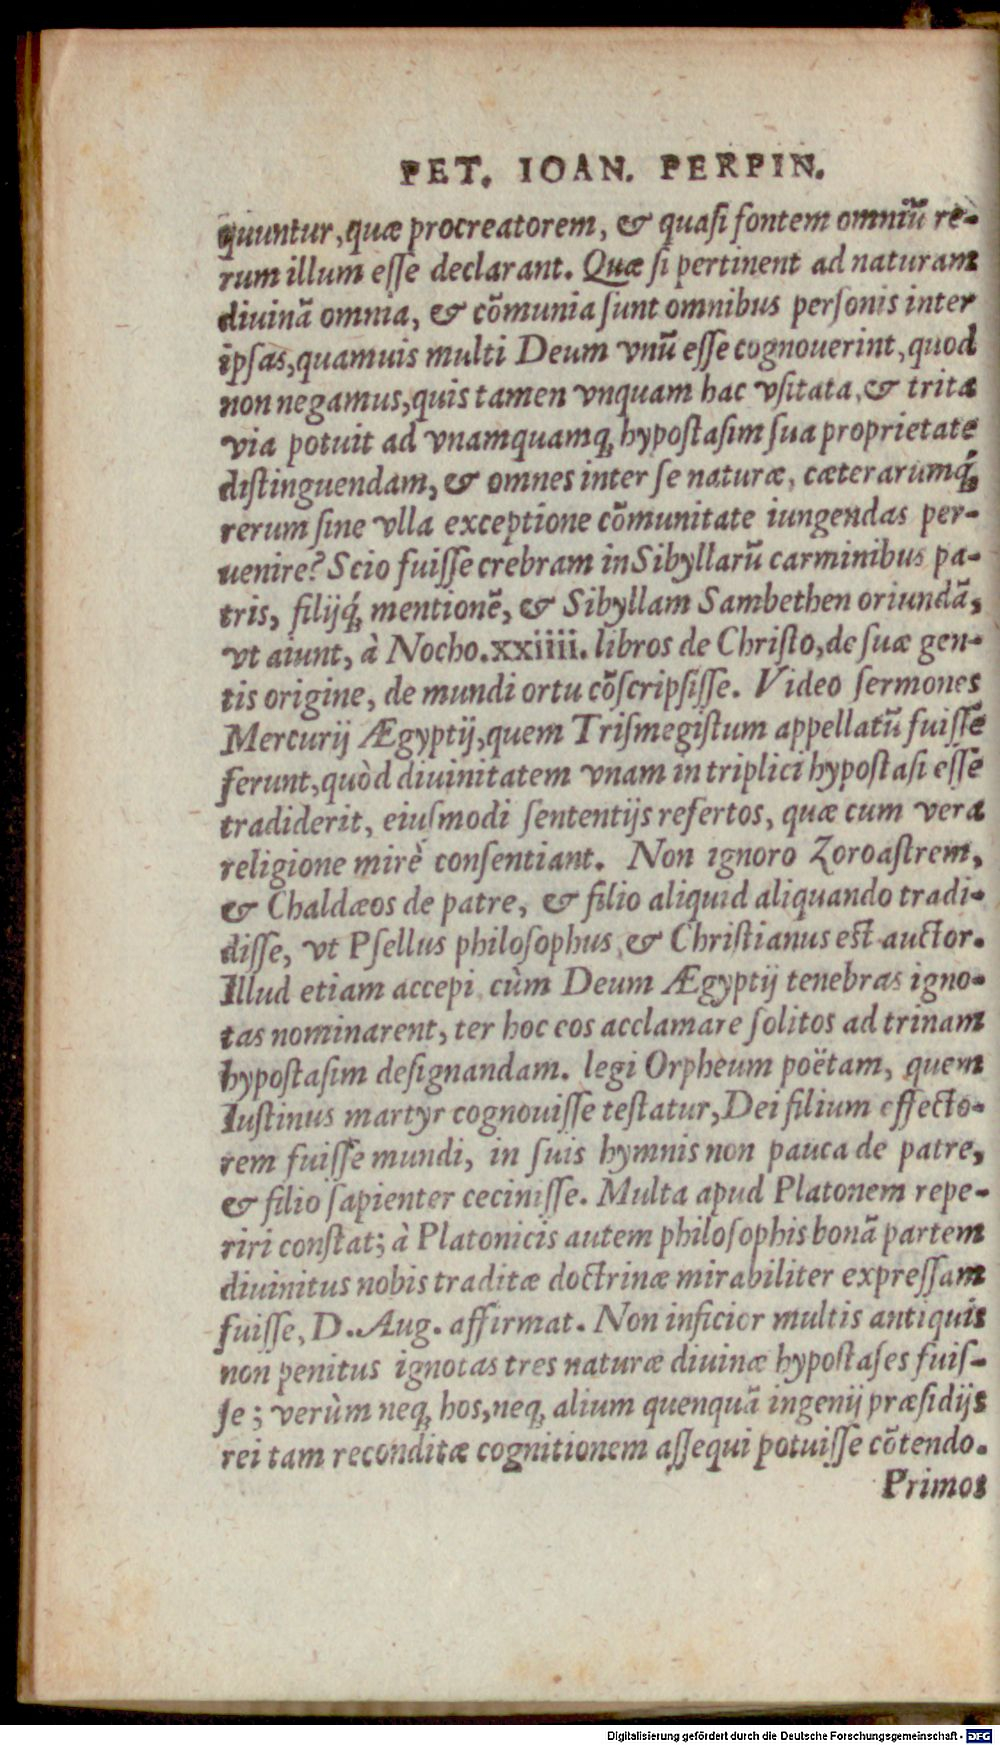 PET. IOAN. PERPIN.
quuntur, quæ procreatorem, & quaſi fontem omniū re-
rum illum eſſe declarant. Quæ ſi pertinent ad naturam
diuinā omnia, & cōmunia ſunt omnibus perſonis inter
ipſas, quamuis multi Deum vnū eſſe cognouerint, quod
non negamus, quis tamen vnquam hac vſitata, & trita
via potuit ad vnamquamq; hypoſtaſim ſua proprietate
diſtinguendam, & omnes inter ſe naturæ, cæterarumq́;
rerum ſine vlla exceptione cōmunitate iungendas per-
uenire? Scio fuiſſe crebram in Sibyllarū carminibus pa-
tris, filijq́; mentionē, & Sibyllam Sambethen oriundā,
vt aiunt, à Nocho. xxiiii. libros de Chriſto, de ſuæ gen-
tis origine, de mundi ortu cōſcripſiſſe. Video ſermones
Mercurij Ægyptij, quem Triſmegiſtum appellatū fuiſſe
ferunt, quòd diuinitatem vnam in triplici hypoſtaſi eſſe
tradiderit, eiuſmodi ſententijs refertos, quæ cum vera
religione mirè conſentiant. Non ignoro Zoroaſtrem,
& Chaldæos de patre, & filio aliquid aliquando tradi-
diſſe, vt Pſellus philoſophus, & Chriſtianus eſt auctor.
Illud etiam accepi, cùm Deum Ægyptij tenebras igno-
tas nominarent, ter hoc eos acclamare ſolitos ad trinam
hypoſtaſim deſignandam. legi Orpheum poëtam, quem
Iuſtinus martyr cognouiſſe teſtatur, Dei filium effecto-
rem fuiſſe mundi, in ſuis hymnis non pauca de patre,
& filio ſapienter ceciniſſe. Multa apud Platonem repe-
riri conſtat; à Platonicis autem philoſophis bonā partem
diuinitus nobis traditæ doctrinæ mirabiliter expreſſam
fuiſſe, D. Aug. affirmat. Non inficior multis antiquis
non penitus ignotas tres naturæ diuinæ hypoſtaſes fuiſ-
ſe; verùm neq; hos, neq; alium quenquā ingenij præſidijs
rei tam reconditæ cognitionem aſſequi potuiſſe cōtendo.
Primos
Digitalisierung gefördert durch die Deutsche Forschungsgemeinschaft - DFG